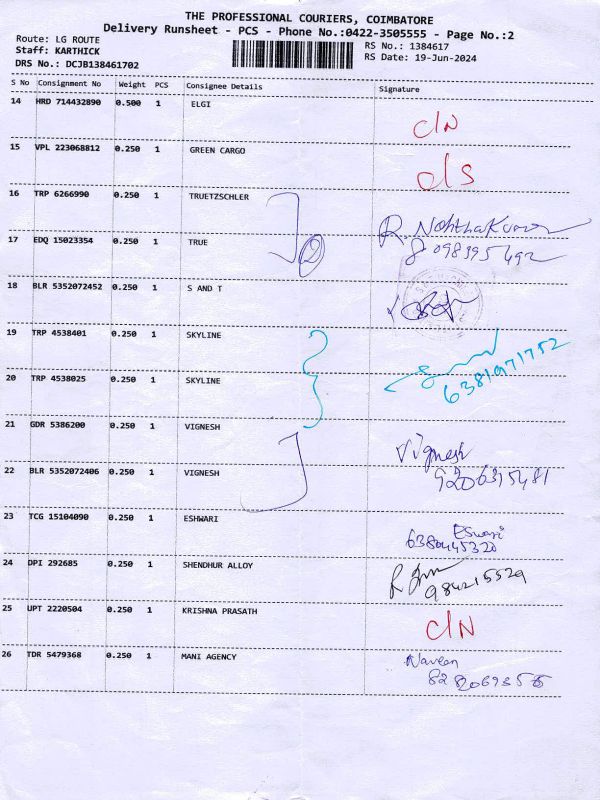 THE PROFESSIONAL COURIERS, COIMBATORE
Delivery Runsheet - PCS - Phone No.:0422-3505555 - Page No.:2
Route: LG ROUTE
RS No.: 1384617
Staff: KARTHICK
RS Date: 19-Jun-2024
DRS No.: DCJB138461702
S No Consignment No Weight PCS Consignee Details Signature
14 HRD 714432890 0.500 1 ELGI
C/N
15 VPL 223068812 0.250 1 GREEN CARGO
O/S
16 TRP 6266990 0.250 1 TRUETZSCHLER
2
17 EDQ 15023354 0.250 1 TRUE
18 BLR 5352072452 0.250 1 S AND T
19 TRP 4538401 0.250 1 SKYLINE
20 TRP 4538025 0.250 1 SKYLINE
6381971752
21 GDR 5386200 0.250 1 VIGNESH
Vignesh
22 BLR 5352072406 0.250 1 VIGNESH
9206315481
23 TCG 15104090 0.250 1 ESHWARI
Eswari
6380445320
24 DPI 292685 0.250 1 SHENDHUR ALLOY
25 UPT 2220504 0.250 1 KRISHNA PRASATH
C/N
26 TDR 5479368 0.250 1 MANI AGENCY
Naveen